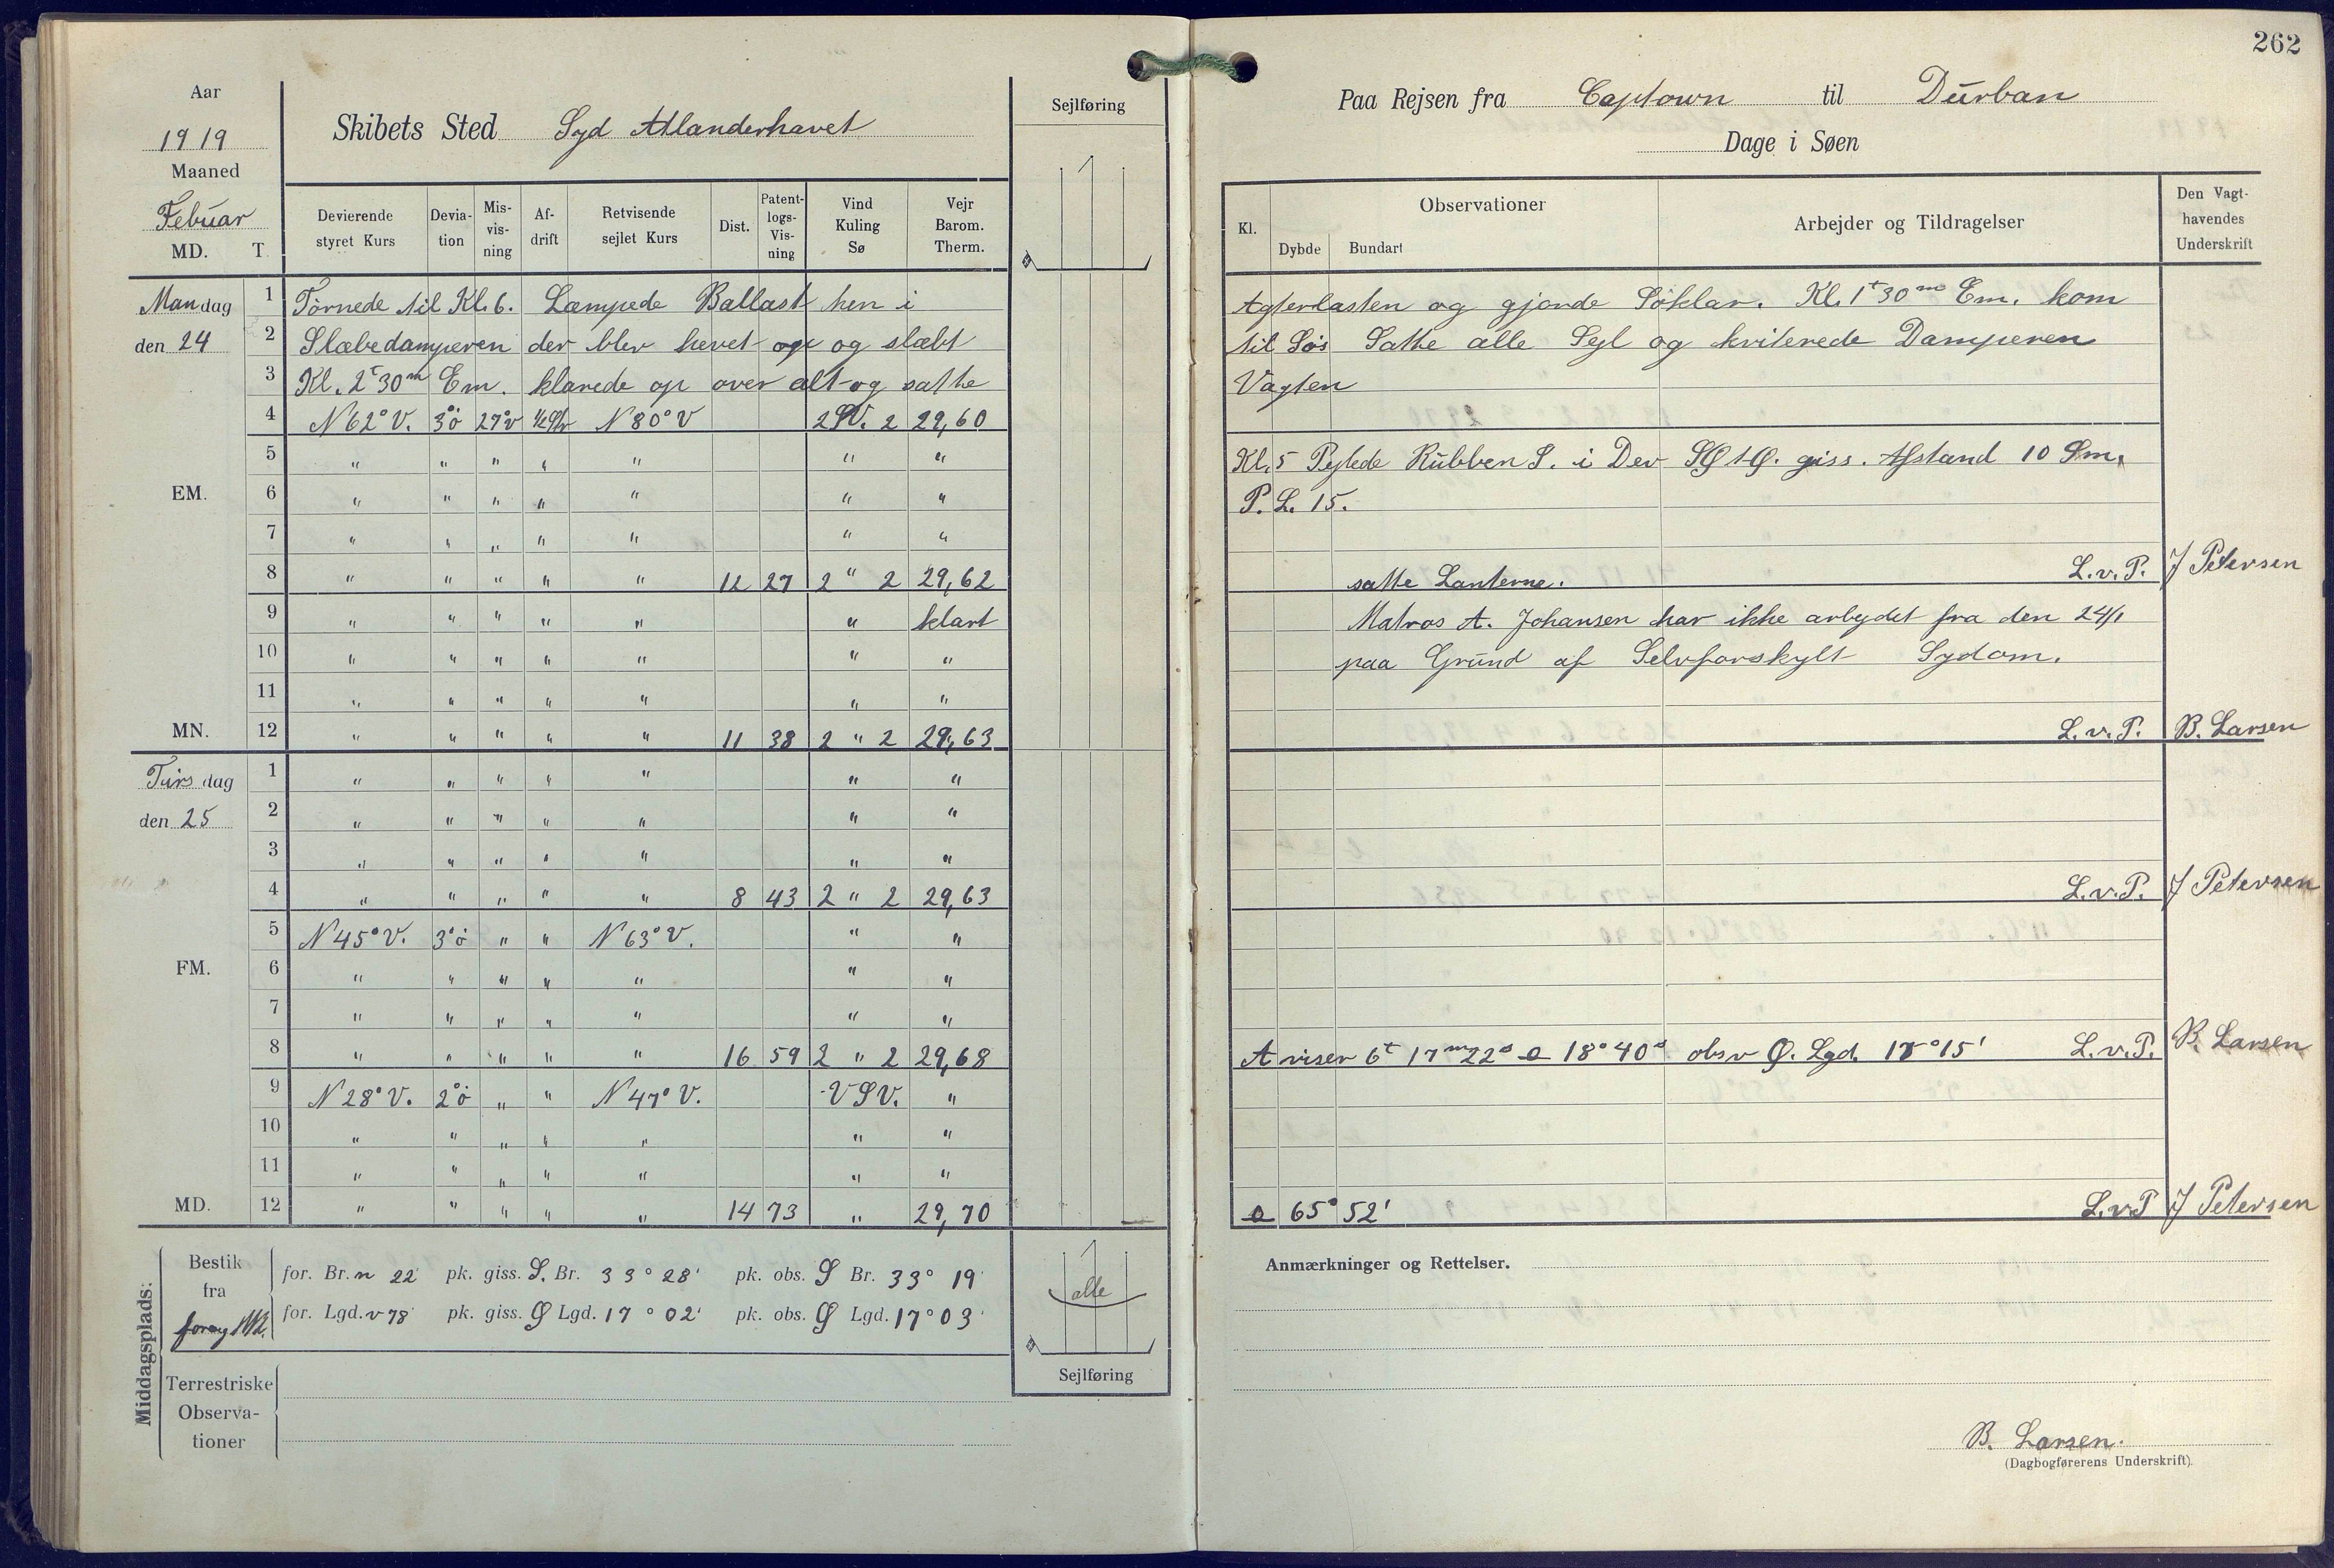 262
Aar
1919
Maaned
Febuar
MD. T.
Skibets Sted Syd Atlanderhavet
Sejlføring
Paa Rejsen fra Captown til Durban
Dage i Søen
Devierende styret Kurs
Deviation
Misvisning
Afdrift
Retvisende sejlet Kurs
Dist.
Patentlogs-Visning
Vind Kuling Sø
Vejr Barom. Therm.
Kl.
Observationer
Dybde Bundart
Arbejder og Tildragelser
Den Vagthavendes Underskrift
Mandag 1 Tørnede til Kl. 6. Læmpede Ballast hen i Agterlasten og gjorde Søklar. Kl. 1t 30m Em. kom
den 24 2 Slæbedamperen der blev hevet op og slæbt til Søs Satte alle Sejl og kviterede Damperen
3 Kl. 2t 30m Em. klarede op over alt og satte Vagten
4 N 62° V. 3°ö 27°v N 80° V 2 SV. 2 29,60
5 " " " " " " " Kl. 5 Pejlede Rübben S. i Dev SØ t Ø. giss. Afstand 10 Sm.
EM. 6 " " " " " " " P. L. 15.
7 " " " " " " "
8 " " " " " 12 27 2 " 2 29,62 satte Lanterne. L.v.P. J Petersen
9 " " " " " " klart Matros A. Johansen har ikke arbejdet fra den 24/1
10 " " " " " " " paa Grund af Selvforskylt Sydom.
11 " " " " " " "
MN. 12 " " " " " 11 38 2 " 2 29,63 L.v.P. B. Larsen
Tirsdag 1 " " " " " " "
den 25 2 " " " " " " "
3 " " " " " " "
4 " " " " " 8 43 2 " 2 29,63 L.v.P. J Petersen
5 N 45° V. 3°ö " " N 63° V. " "
FM. 6 " " " " " " "
7 " " " " " " "
8 " " " " " 16 59 2 " 2 29,68 A viser 6t 17m 22s 18° 40s obsv Ø. Lgd. 17° 15' L.v.P. B. Larsen
9 N 28° V. 2°ö " " N 47° V. VSV. "
10 " " " " " " "
11 " " " " " " "
MD. 12 " " " " " 14 73 " 29,70 65° 52' L.v.P J Petersen
Middagsplads:
Bestik fra
for. Br. n 22' pk. giss. S. Br. 33° 28' pk. obs. S Br. 33° 19'
for. Lgd. v 78' pk. giss. Ø Lgd. 17° 02' pk. obs. Ø Lgd. 17° 03'
alle
Sejlføring
Terrestriske Observationer
Anmærkninger og Rettelser.
B. Larsen.
(Dagbogførerens Underskrift).